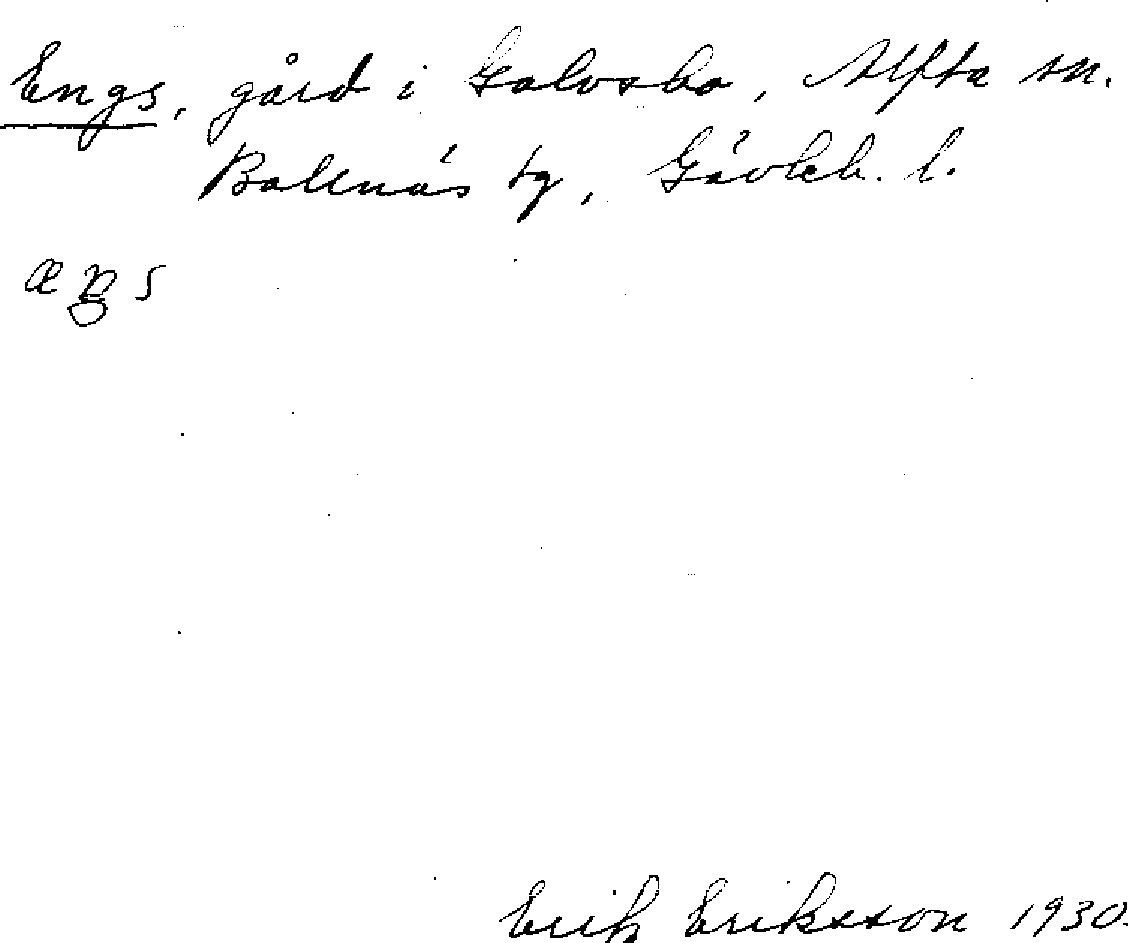 Engs, gård i Galvsbo, Alfta sn.
Bollnäs tg, Gävleb. l.
Erik Eriksson 1930.